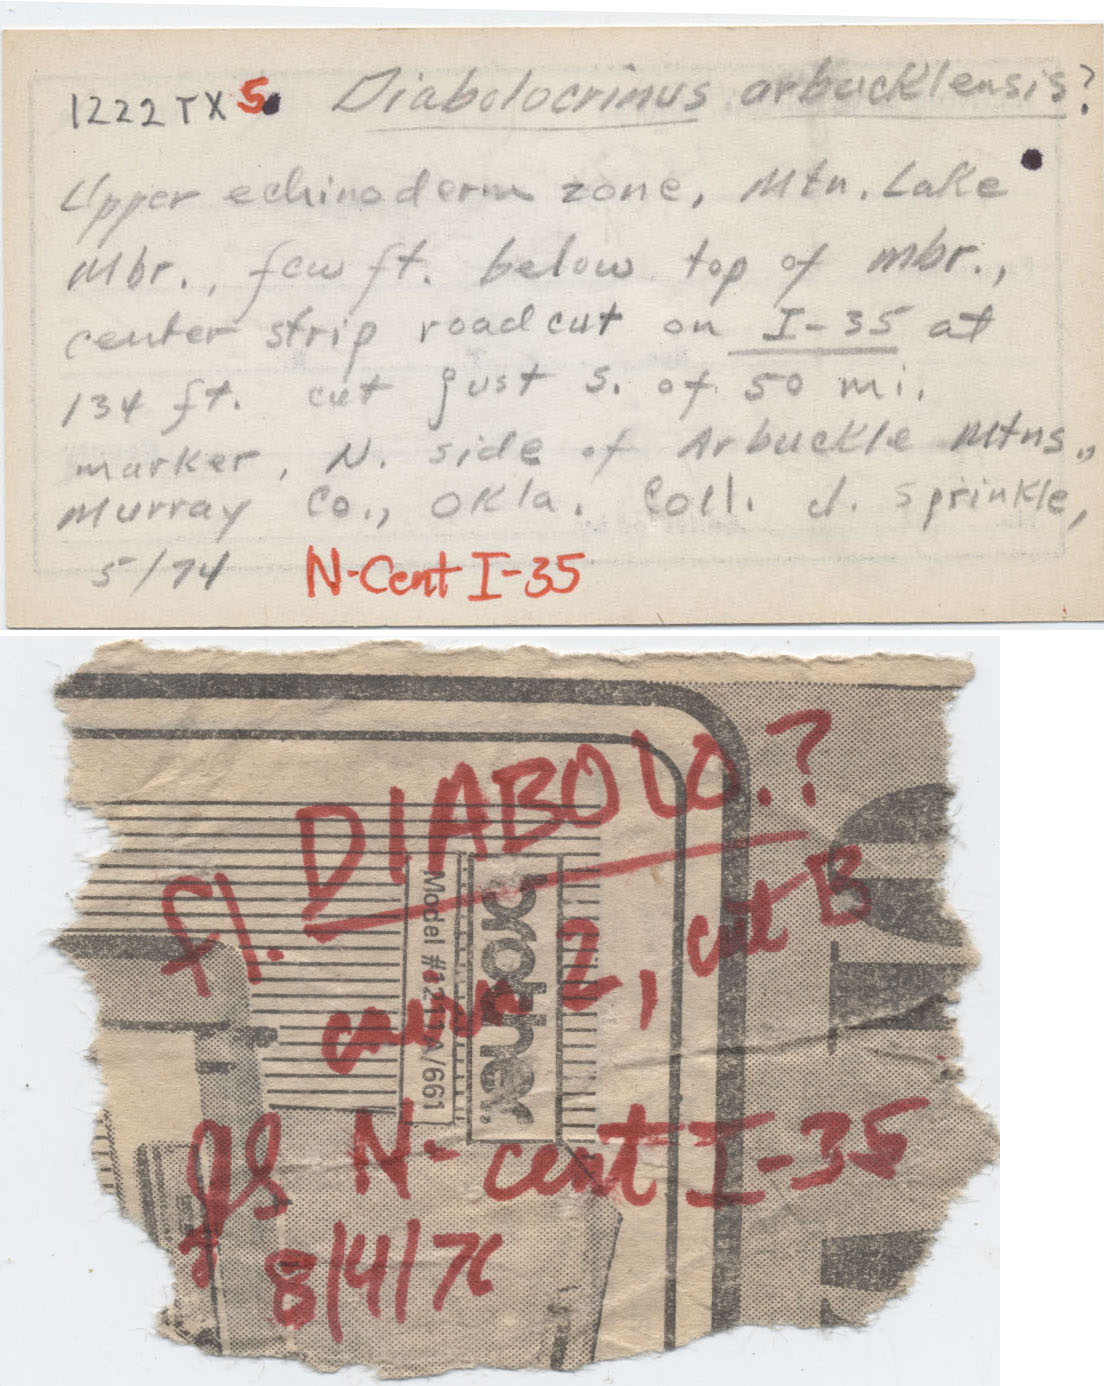 1222TX5. Diabolocrinus arbucklensis?
Upper echinoderm zone, Mtn. Lake
Mbr., few ft. below top of mbr.,
center strip roadcut on I-35 at
134 ft. cut just S. of 50 mi.
marker, N. side of Arbuckle Mtns.,
Murray Co., Okla. Coll. J. Sprinkle,
5/74 N-Cent I-35
fl. DIABOLO.?
2, cut B
brother
Model #
A/661
JS N-cent I-35
8/4/76